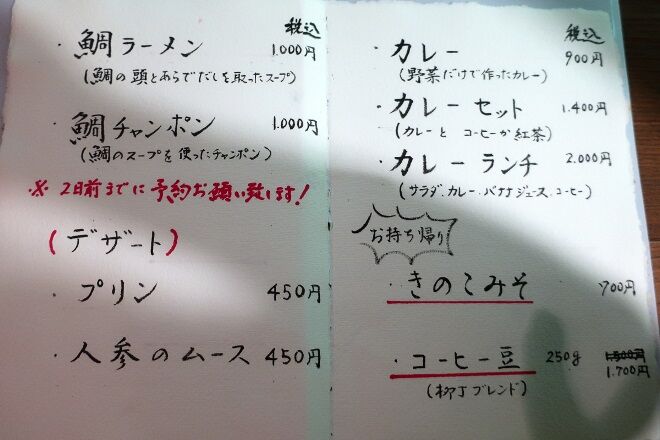 税込
・鯛ラーメン 1.000円
(鯛の頭とあらでだしを取ったスープ)
・鯛チャンポン 1.000円
(鯛のスープを使ったチャンポン)
※ 2日前までに予約お願い致します!
(デザート)
・プリン 450円
・人参のムース 450円
税込
・カレー 900円
(野菜だけで作ったカレー)
・カレーセット 1.400円
(カレーと コーヒーか紅茶)
・カレーランチ 2.000円
(サラダ.カレー.バナナジュース.コーヒー)
お持ち帰り
・きのこみそ 700円
・コーヒー豆 250g 1.500円
1.700円
(柳丁ブレンド)